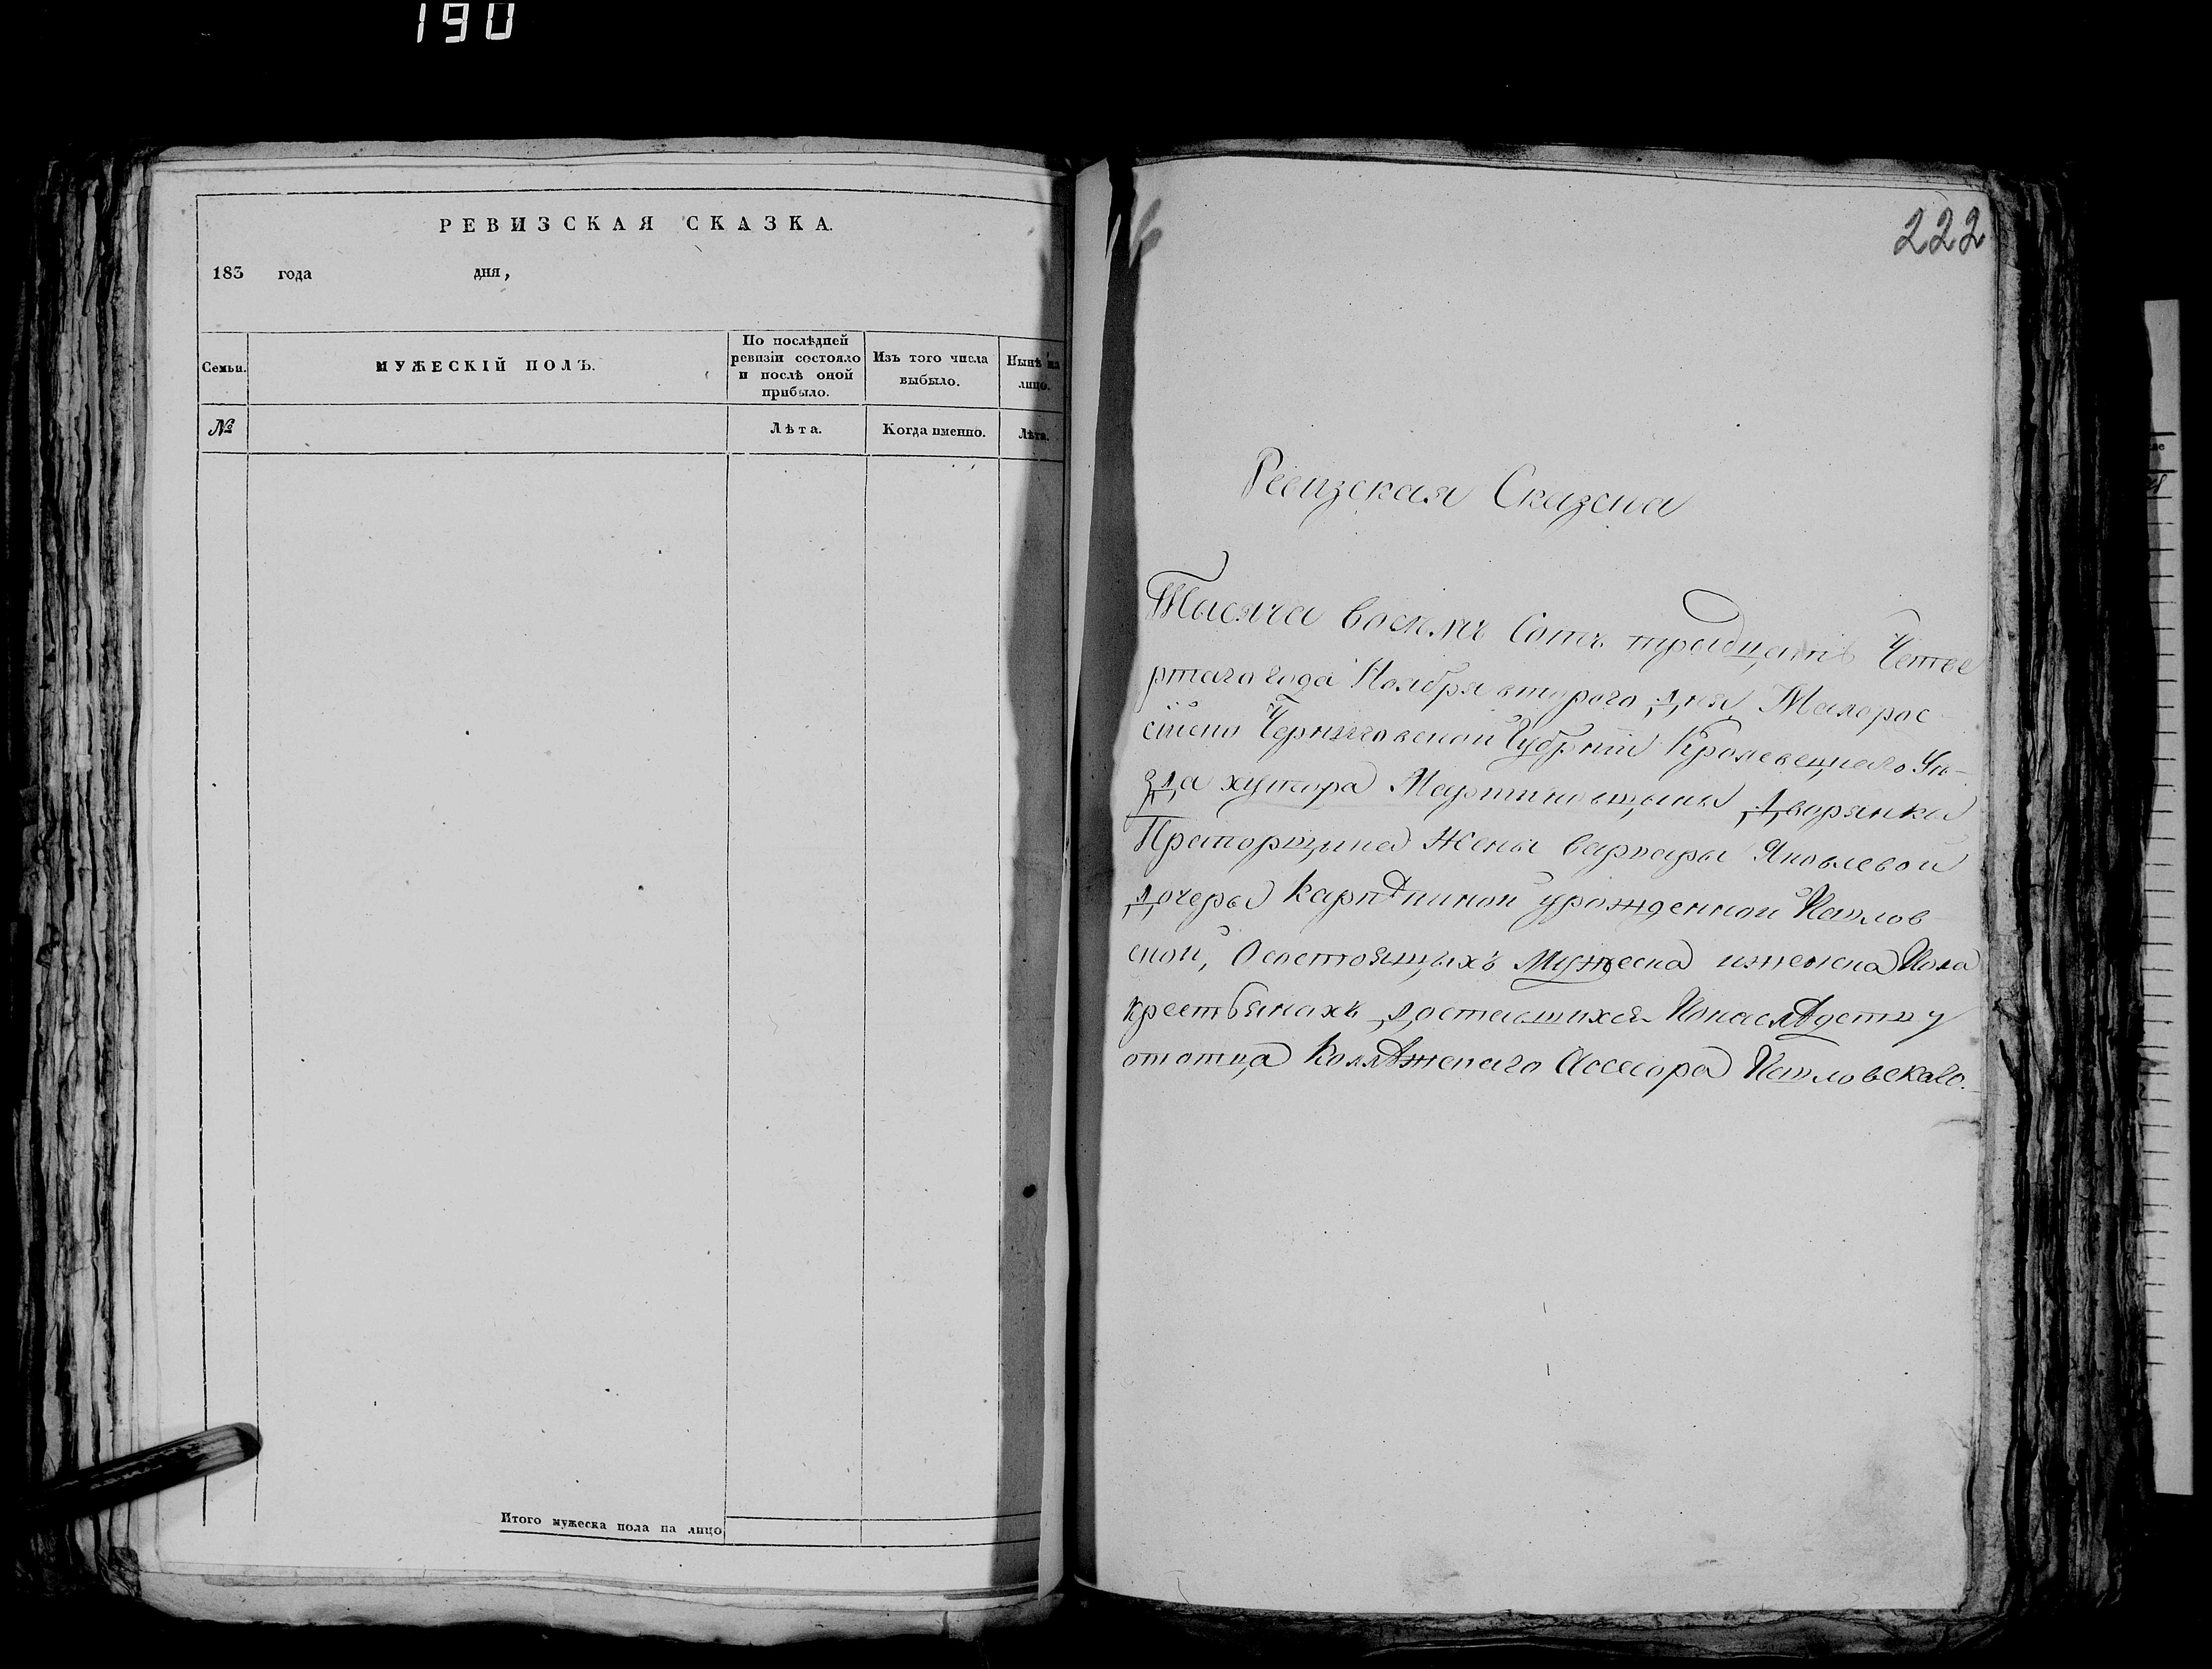 190
РЕВИЗСКАЯ СКАЗКА.
183 года дня,
Семьи.
МУЖЕСКІЙ ПОЛЪ.
По послѣдней
ревизіи состояло
и послѣ оной
прибыло.
Изъ того числа
выбыло.
Нынѣ на
лицо.
№
Лѣта.
Когда именно.
Лѣта.
Итого мужеска пола на лицо
222
Ревизская Сказка
Тысяча восимъ Сотъ тридцать Четве
ртаго года Ноября второго дня Малорос
сійско Черниговской Губрніи Кролевецкаго Уѣ-
зда хутора Мартиновщины Дворянки
Прапорщика Жены варвары Яковлевой
дочеры урожденной
ской, О состоящыхъ Мужеска иженска Пола
крестьянахъ доставшихся Понаслѣдству
ототца Коллѣжскаго Ассесора